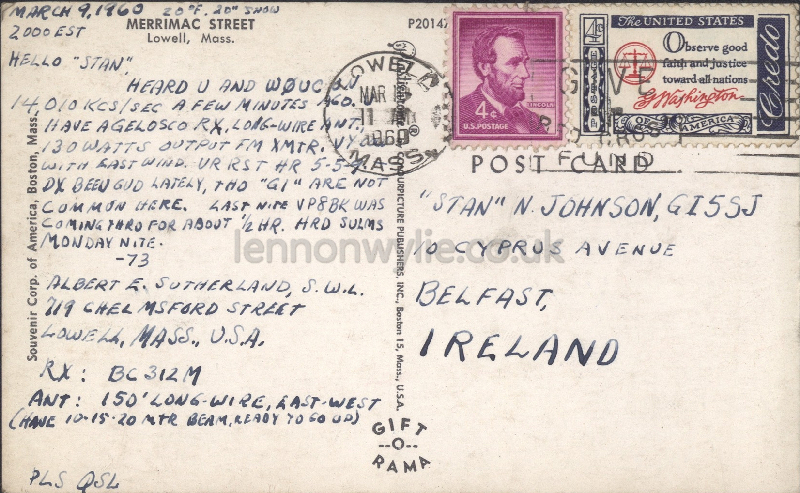 MARCH 9, 1960 20°F. 20" SNOW
2000 EST
MERRIMAC STREET
Lowell, Mass.
P20147
HELLO "STAN",
HEARD U AND
14,010 KCS/SEC A FEW MINUTES AGO.
HAVE A GELOSCO RX, LONG-WIRE ANT,
130 WATTS OUTPUT FM XMTR.
WITH EAST WIND. UR RST HR 5-5-9
DX BEEN GUD LATELY, THO "GI" ARE NOT
COMMON HERE. LAST NITE VP8BK WAS
COMING THRO FOR ABOUT ½ HR. HRD 5ULMS
MONDAY NITE.
-73
ALBERT E. SUTHERLAND, S.W.L.
719 CHELMSFORD STREET
LOWELL, MASS., U.S.A.
RX: BC312M
ANT: 150' LONG-WIRE, EAST-WEST
(HAVE 10-15-20 MTR BEAM, READY TO GO UP)
PLS QSL
Souvenir Corp. of America, Boston, Mass.
PUBLISHERS, INC., Boston 15, Mass., U.S.A.
GIFT
--O--
RAMA
LOWELL
MAR
11
1960
MASS.
GIVE
FUND
4¢
LINCOLN
U.S. POSTAGE
4¢
POSTAGE
The UNITED STATES
Observe good
faith and justice
toward all nations
G Washington
OF AMERICA
Credo
POST CARD
"STAN" N. JOHNSON, GI5SJ
10 CYPRUS AVENUE
BELFAST,
IRELAND
lennonwylie.co.uk